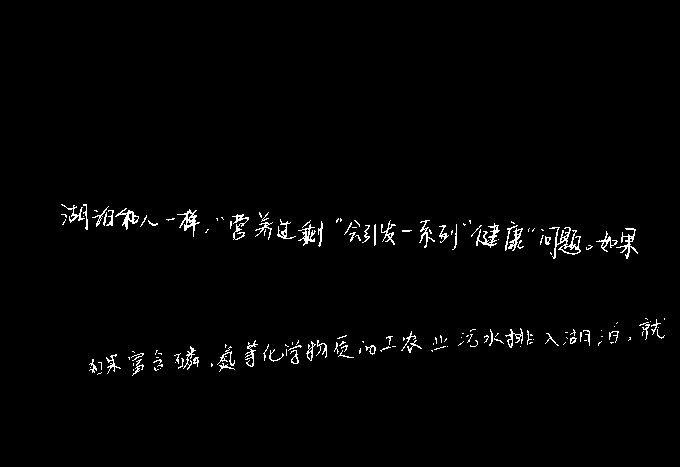 湖泊和人一样，“营养过剩“会引发一系列“健康“问题。如果
如果富含磷，氮等化学物质的工农业污水排入湖泊，就